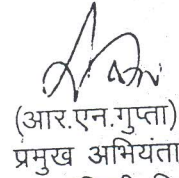 (आर.एन.गुप्ता)
प्रमुख अभियंता